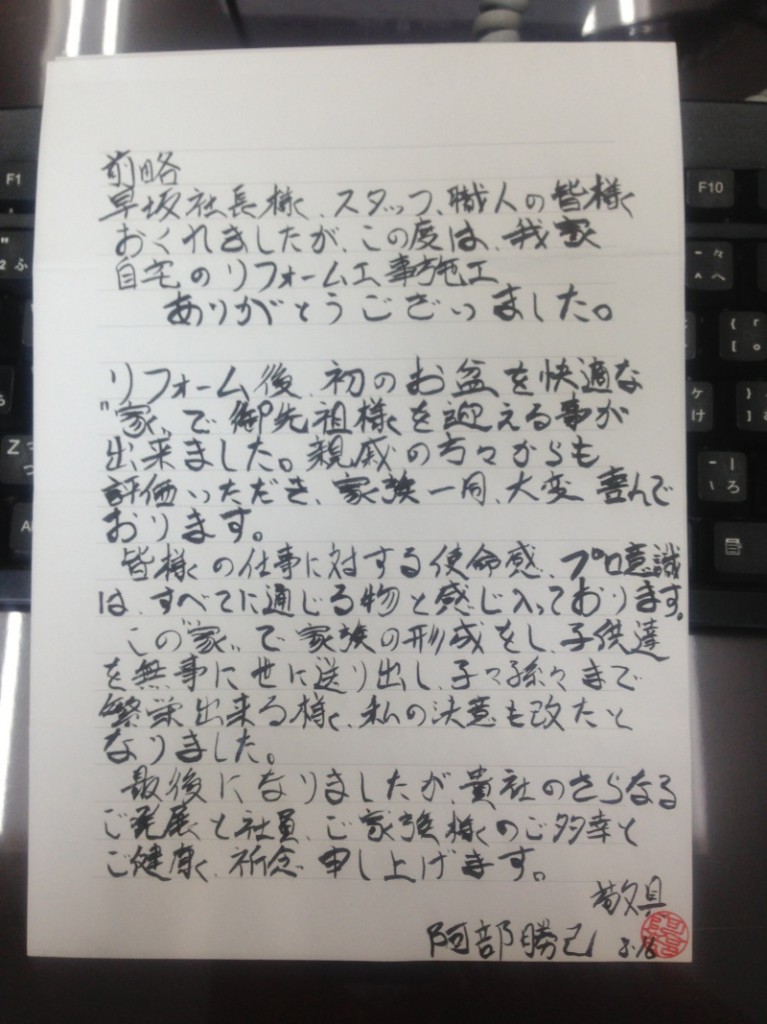 前略
早坂社長様、スタッフ、職人の皆様
おくれましたが、この度は、我家
自宅のリフォーム工事施工
ありがとうございました。
リフォーム後、初のお盆を快適な
"家"で御先祖様を迎える事が
出来ました。親戚の方々からも
評価いただき、家族一同、大変喜んで
おります。
皆様の仕事に対する使命感、プロ意識
は、すべてに通じる物と感じ入っております。
この"家"で家族の形成をし、子供達
を無事に世に送り出し、子々孫々まで
繁栄出来る様、私の決意も改たと
なりました。
最後になりましたが、貴社のさらなる
ご発展と社員、ご家族様のご多幸と
ご健康、祈念申し上げます。
敬具
阿部勝己 8.16
F1
F10
Z